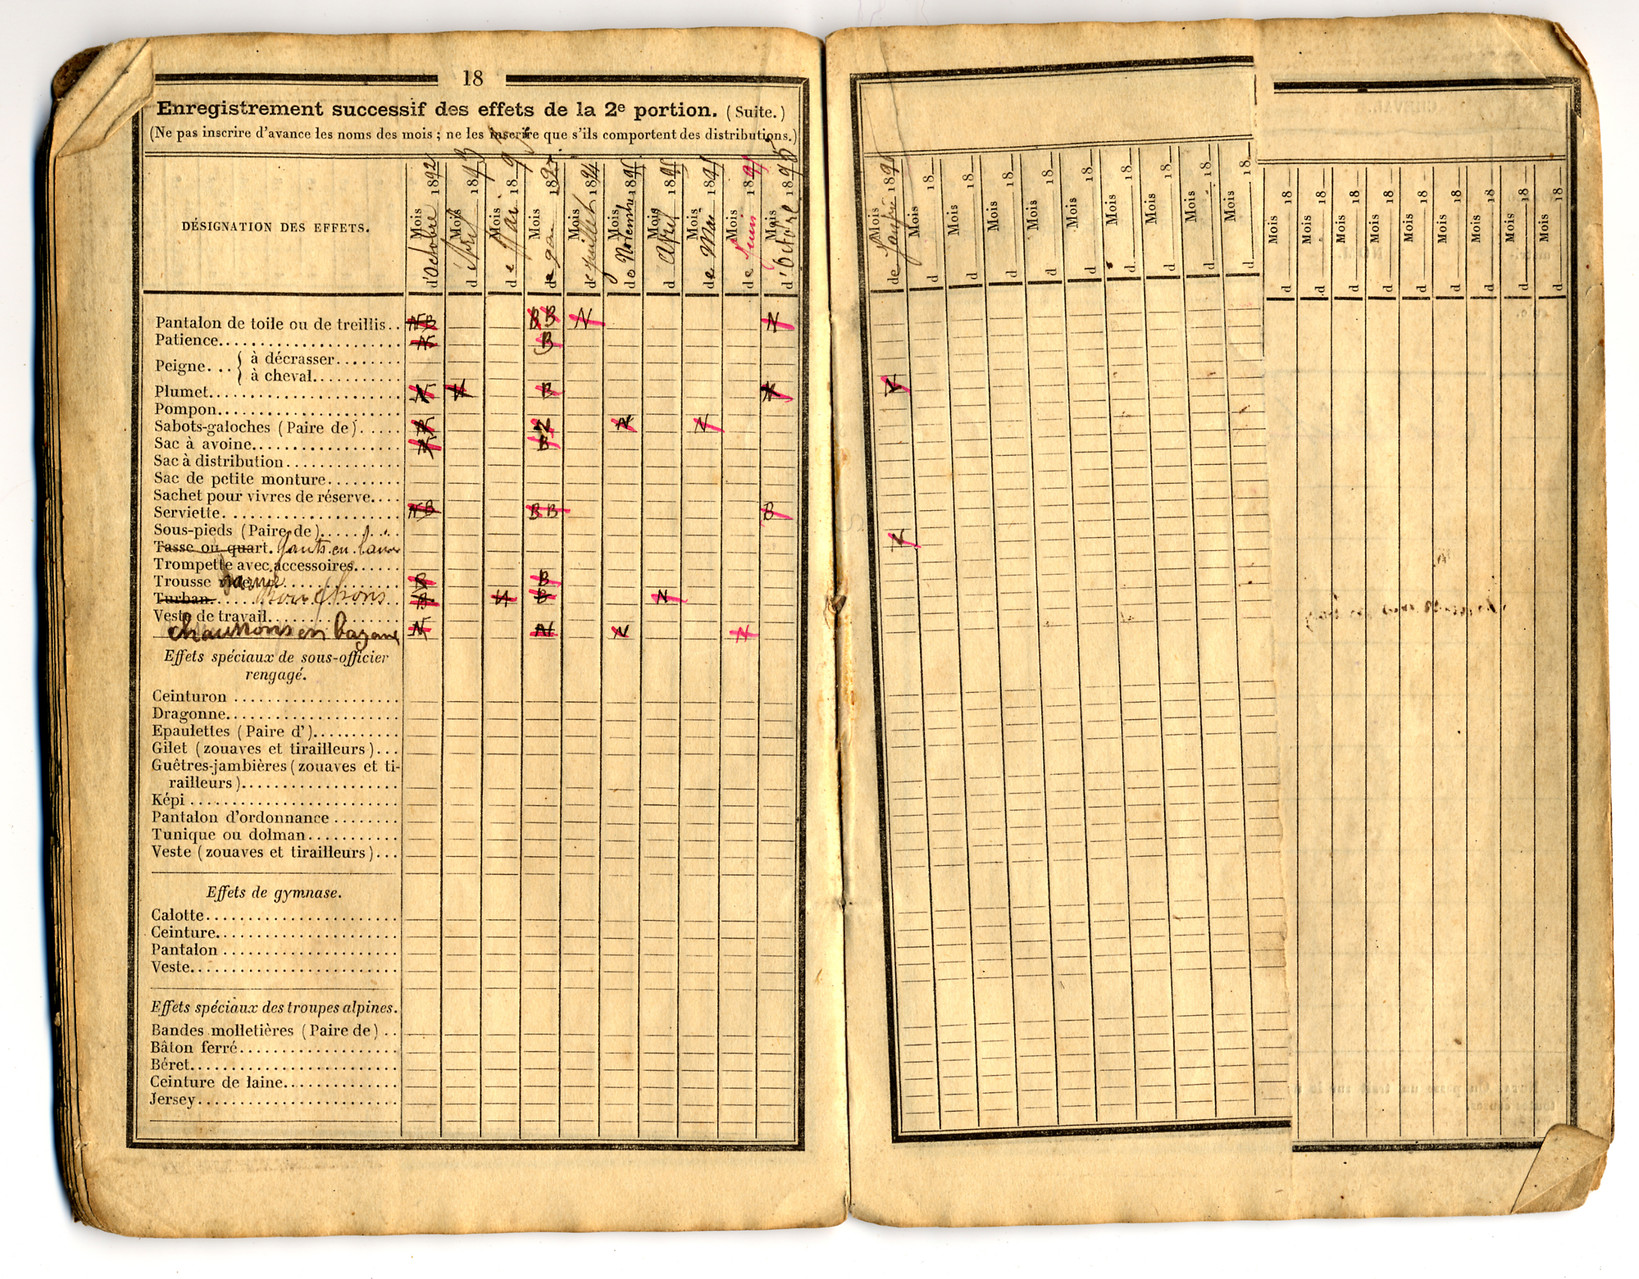 18
Enregistrement successif des effets de la 2e portion. (Suite.)
(Ne pas inscrire d'avance les noms des mois ; ne les inscrire que s'ils comportent des distributions.)
DÉSIGNATION DES EFFETS.
Mois d'Octobre 1892
Mois d'Avril 1893
Mois de Mai 189
Mois de 18
Mois de juillet 1894
Mois de Novembre 189
Mois d'Avril 189
Mois de Mai 189
Mois de Juin 189
Mois d'Octobre 1895
Pantalon de toile ou de treillis.. NB BB N N
Patience.................... N B
Peigne... { à décrasser........
à cheval...........
Plumet.................... N N B N
Pompon....................
Sabots-galoches (Paire de)..... N N N N
Sac à avoine.................. N B
Sac à distribution.............
Sac de petite monture.........
Sachet pour vivres de réserve....
Serviette.................... NB BB B
Sous-pieds (Paire de)........
Tasse ou quart. Gants en
Trompette avec accessoires......
Trousse garnie B B
Turban. B N B N
Veste de travail.
Chaussons en bazane N N N N
Effets spéciaux de sous-officier
rengagé.
Ceinturon ...................
Dragonne....................
Epaulettes (Paire d')..........
Gilet (zouaves et tirailleurs)...
Guêtres-jambières (zouaves et ti-
railleurs)...................
Képi .......................
Pantalon d'ordonnance ........
Tunique ou dolman...........
Veste (zouaves et tirailleurs)...
Effets de gymnase.
Calotte......................
Ceinture.....................
Pantalon ....................
Veste.......................
Effets spéciaux des troupes alpines.
Bandes molletières (Paire de) ..
Bâton ferré..................
Béret.......................
Ceinture de laine.............
Jersey.......................
Mois de 189
Mois d 18
Mois d 18
Mois d 18
Mois d 18
Mois d 18
Mois d 18
Mois d 18
Mois d 18
Mois d 18
N
N
Mois d 18
Mois d 18
Mois d 18
Mois d 18
Mois d 18
Mois d 18
Mois d 18
Mois d 18
Mois d 18